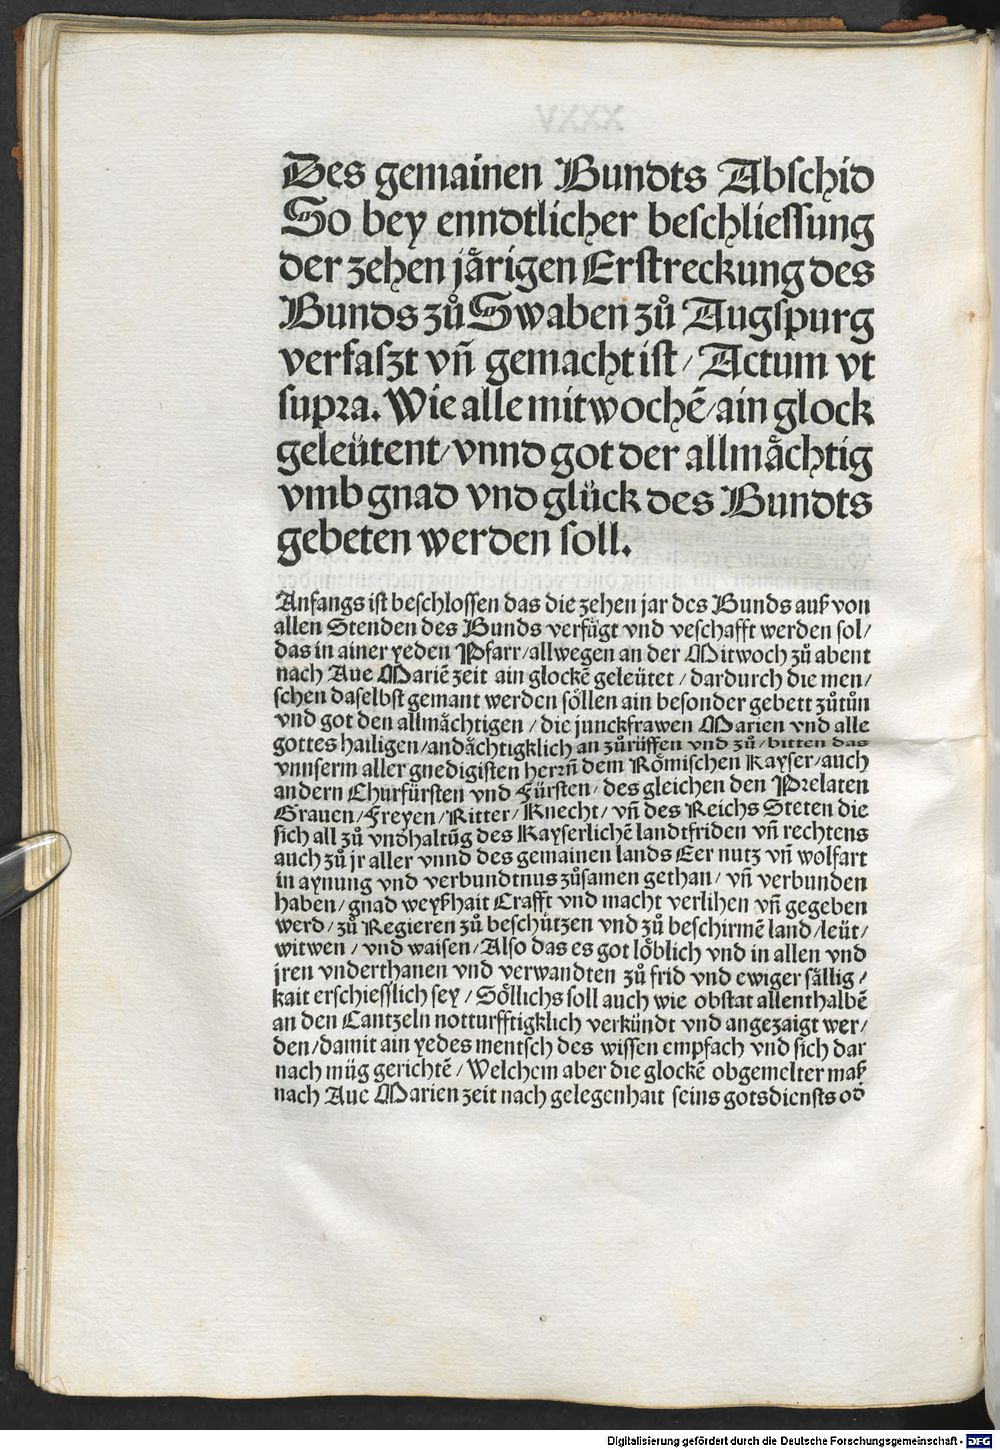 Des gemainen Bundts Abschid
So bey enndtlicher beschliessung
der zehen jårigen Erstreckung des
Bunds zů Swaben zů Augspurg
verfaszt vñ gemacht ist/ Actum vt
supra. Wie alle mitwochẽ/ain glock
geleütent/vnnd got der allmåchtig
vmb gnad vnd glück des Bundts
gebeten werden soll.
Anfangs ist beschlossen das die zehen jar des Bunds auß von
allen Stenden des Bunds verfügt vnd veschafft werden sol/
das in ainer yeden Pfarr/allwegen an der Mitwoch zů abent
nach Aue Mariẽ zeit ain glockẽ geleütet/dardurch die men/
schen daselbst gemant werden söllen ain besonder gebett zůtůn
vnd got den allmåchtigen/die junckfrawen Marien vnd alle
gottes hailigen/andåchtigklich an zůrüffen vnd zů/bitten das
vnnserm aller gnedigisten herrñ dem Römischen Kayser/auch
andern Churfürsten vnd Fürsten/des gleichen den Prelaten
Grauen/Freyen/Ritter/Knecht/vñ des Reichs Steten die
sich all zů vnd haltũg des Kayserlichẽ landtfriden vñ rechtens
auch zů jr aller vnnd des gemainen lands Eer nutz vñ wolfart
in aynung vnd verbundtnus zůsamen gethan/vñ verbunden
haben/gnad weyßhait Crafft vnd macht verlihen vñ gegeben
werd/zů Regieren zů beschützen vnd zů beschirmẽ land/leüt/
witwen/vnd waisen/Also das es got löblich vnd in allen vnd
jren vnderthanen vnd verwandten zů frid vnd ewiger sållig/
kait erschiesslich sey/Söllichs soll auch wie obstat allenthalbẽ
an den Cantzeln notturfftigklich verkündt vnd angezaigt wer/
den/damit ain yedes mentsch des wissen empfach vnd sich dar
nach müg gerichtẽ/Welchem aber die glockẽ obgemelter maß
nach Aue Marien zeit nach gelegenhait seins gotsdiensts od
Digitalisierung gefördert durch die Deutsche Forschungsgemeinschaft - DFG